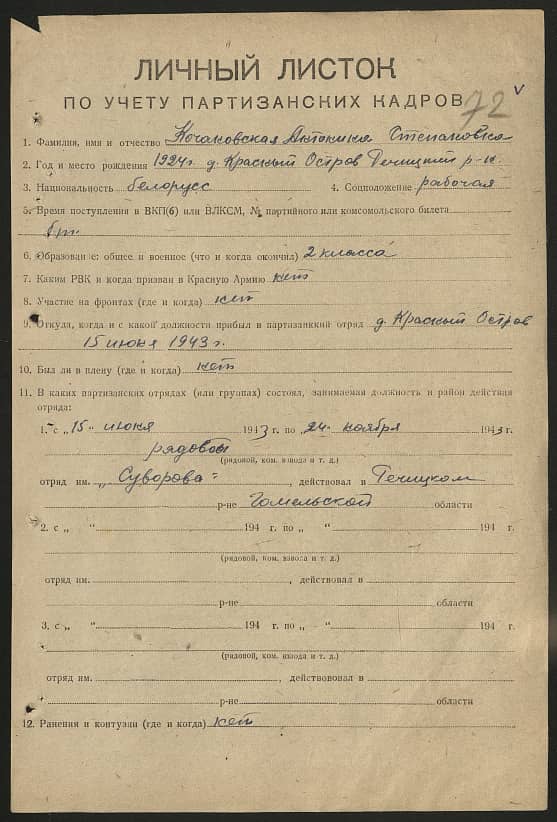 ЛИЧНЫЙ ЛИСТОК
ПО УЧЕТУ ПАРТИЗАНСКИХ КАДРОВ 72 v
1. Фамилия, имя и отчество Кочановская Антонина Степановна
2. Год и место рождения 1924 г. д. Красный Остров Речицкий р-н
3. Национальность белорусс 4. Соцположение рабочая
5. Время поступления в ВКП(б) или ВЛКСМ, № партийного или комсомольского билета
б/п.
6. Образование: общее и военное (что и когда окончил) 2 класса
7. Каким РВК и когда призван в Красную Армию нет
8. Участие на фронтах (где и когда) нет
9. Откуда, когда и с какой должности прибыл в партизанкий отряд д. Красный Остров
15 июня 1943 г.
10. Был ли в плену (где и когда) нет
11. В каких партизанских отрядах (или группах) состоял, занимаемая должность и район действия
отряда:
1. с „15" июня 1943 г. по „24" ноября 1943 г.
рядовой
(рядовой, ком. взвода и т. д.)
отряд им. „Суворова", действовал в Речицком
р-не Гомельской области
2. с „ " 194 г. по „ " 194 г.
(рядовой, ком. взвода и т. д.)
отряд им. , действовал в
р-не области
3. с „ " 194 г. по „ " 194 г.
(рядовой, ком. взвода и т. д.)
отряд им. , действововал в
р-не области
12. Ранения и контузии (где и когда) нет